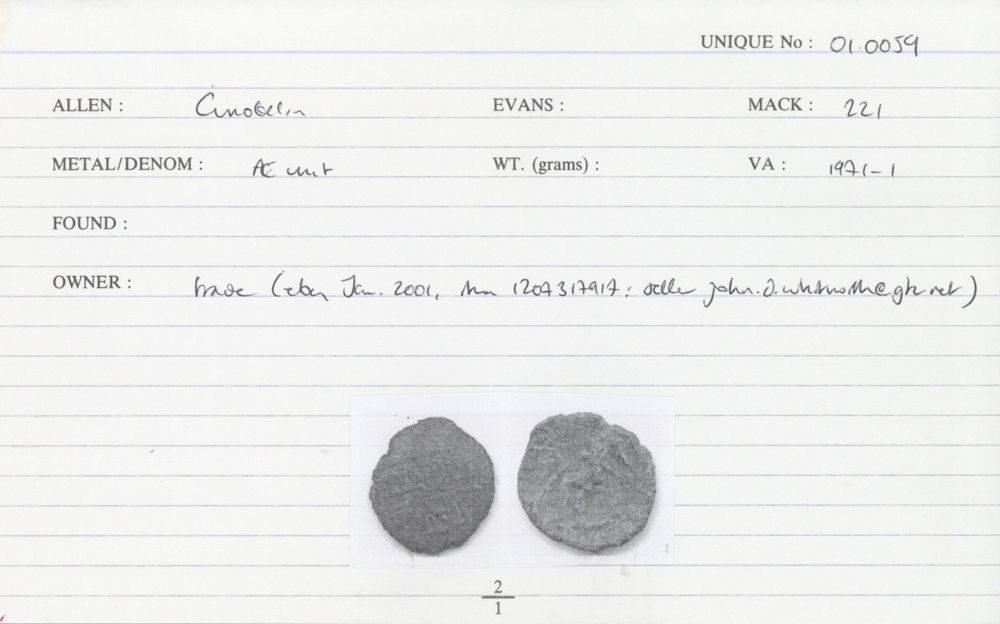 UNIQUE No : 01.0059
ALLEN : Cunobelin EVANS : MACK : 221
METAL/DENOM : Æ unit WT. (grams) : VA : 1971-1
FOUND :
OWNER : trade (ebay Jan. 2001, item 1207317917: seller
2
1